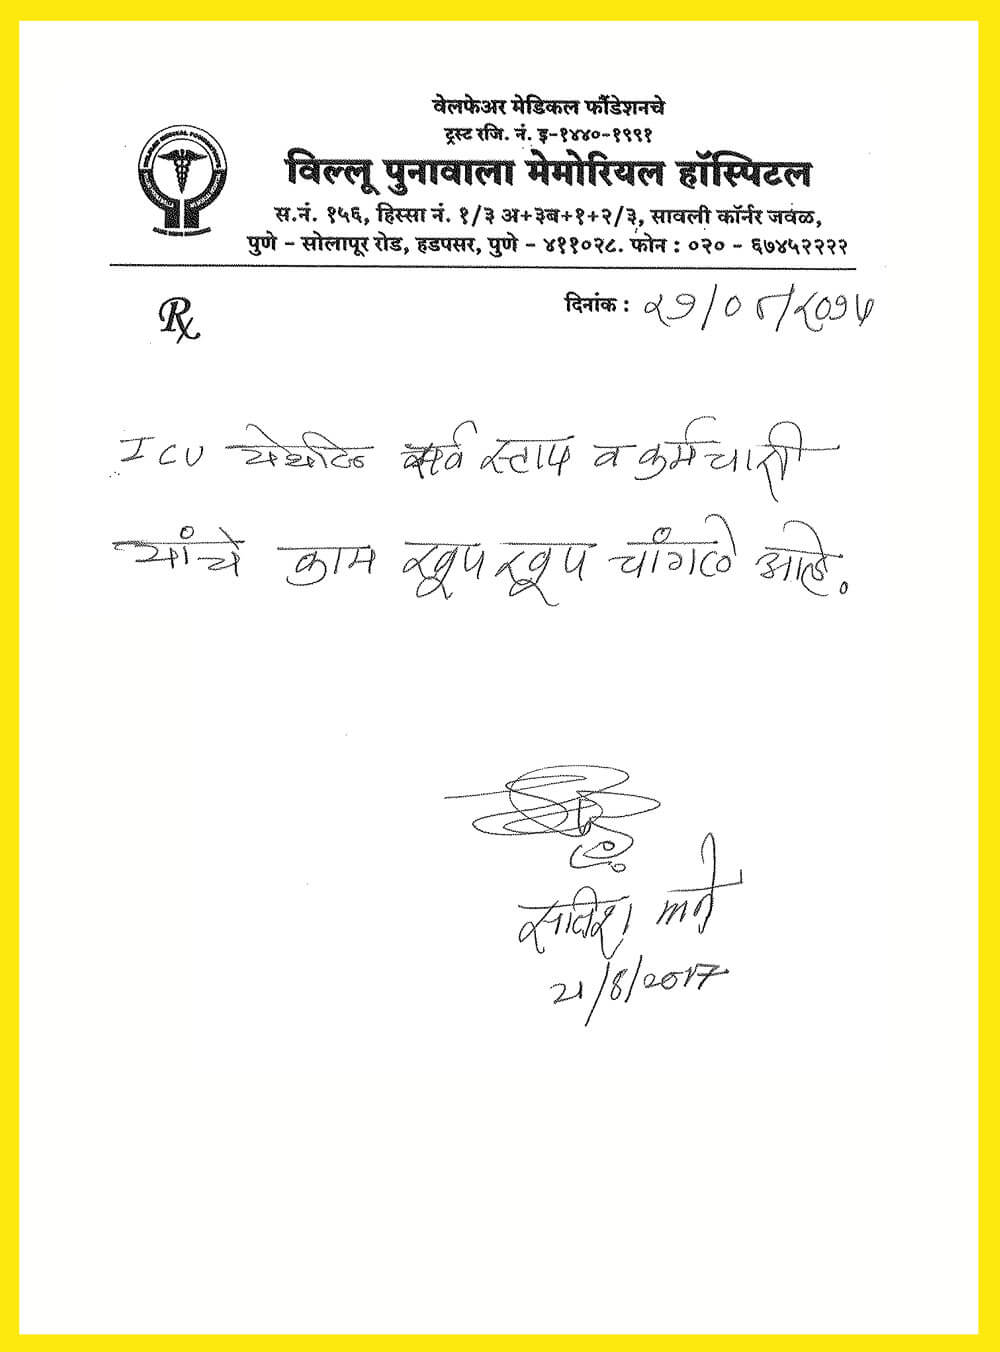 वेलफेअर मेडिकल फौंडेशनचे
ट्रस्ट रजि. नं. इ-१४४०-१९९१
विल्लू पुनावाला मेमोरियल हॉस्पिटल
स.नं. १५६, हिस्सा नं. १/३ अ+३ब+१+२/३, सावली कॉर्नर जवळ,
पुणे - सोलापूर रोड, हडपसर, पुणे - ४११०२८. फोन : ०२० - ६७४५२२२२
Rx
दिनांक : २१/०८/२०१७
ICU येथील सर्व स्टाफ व कर्मचारी
यांचे काम खूप खूप चांगले आहे.
सतिश माने
21/8/2017